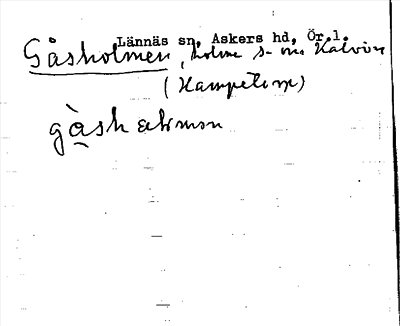 Lännäs sn, Askers hd, Ör.l.
Gåsholmen, holme s. om Kalvön
(Hampetorp)